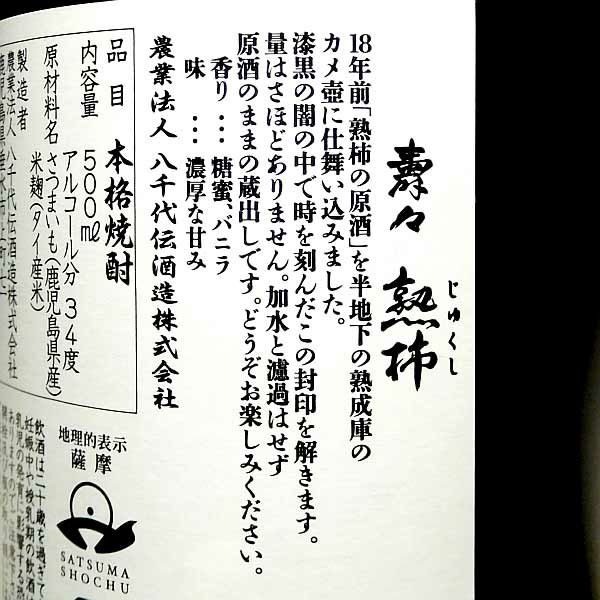 壽々 熟柿
じゅくし
18年前「熟柿の原酒」を半地下の熟成庫の
カメ壺に仕舞い込みました。
漆黒の闇の中で時を刻んだこの封印を解きます。
量はさほどありません。加水と濾過はせず
原酒のままの蔵出しです。どうぞお楽しみください。
香り … 糖蜜、バニラ
味 … 濃厚な甘み
農業法人 八千代伝酒造株式会社
品目 本格焼酎
内容量 500㎖
アルコール分 34度
原材料名 さつまいも(鹿児島県産)
米麹(タイ産米)
製造者
農業法人 八千代伝酒造株式会社
鹿児島県垂水市
地理的表示
薩摩
SATSUMA
SHOCHU
飲酒は二十歳を過ぎて
妊娠中や授乳期の飲酒は
乳児の発育に影響する恐
ありますので